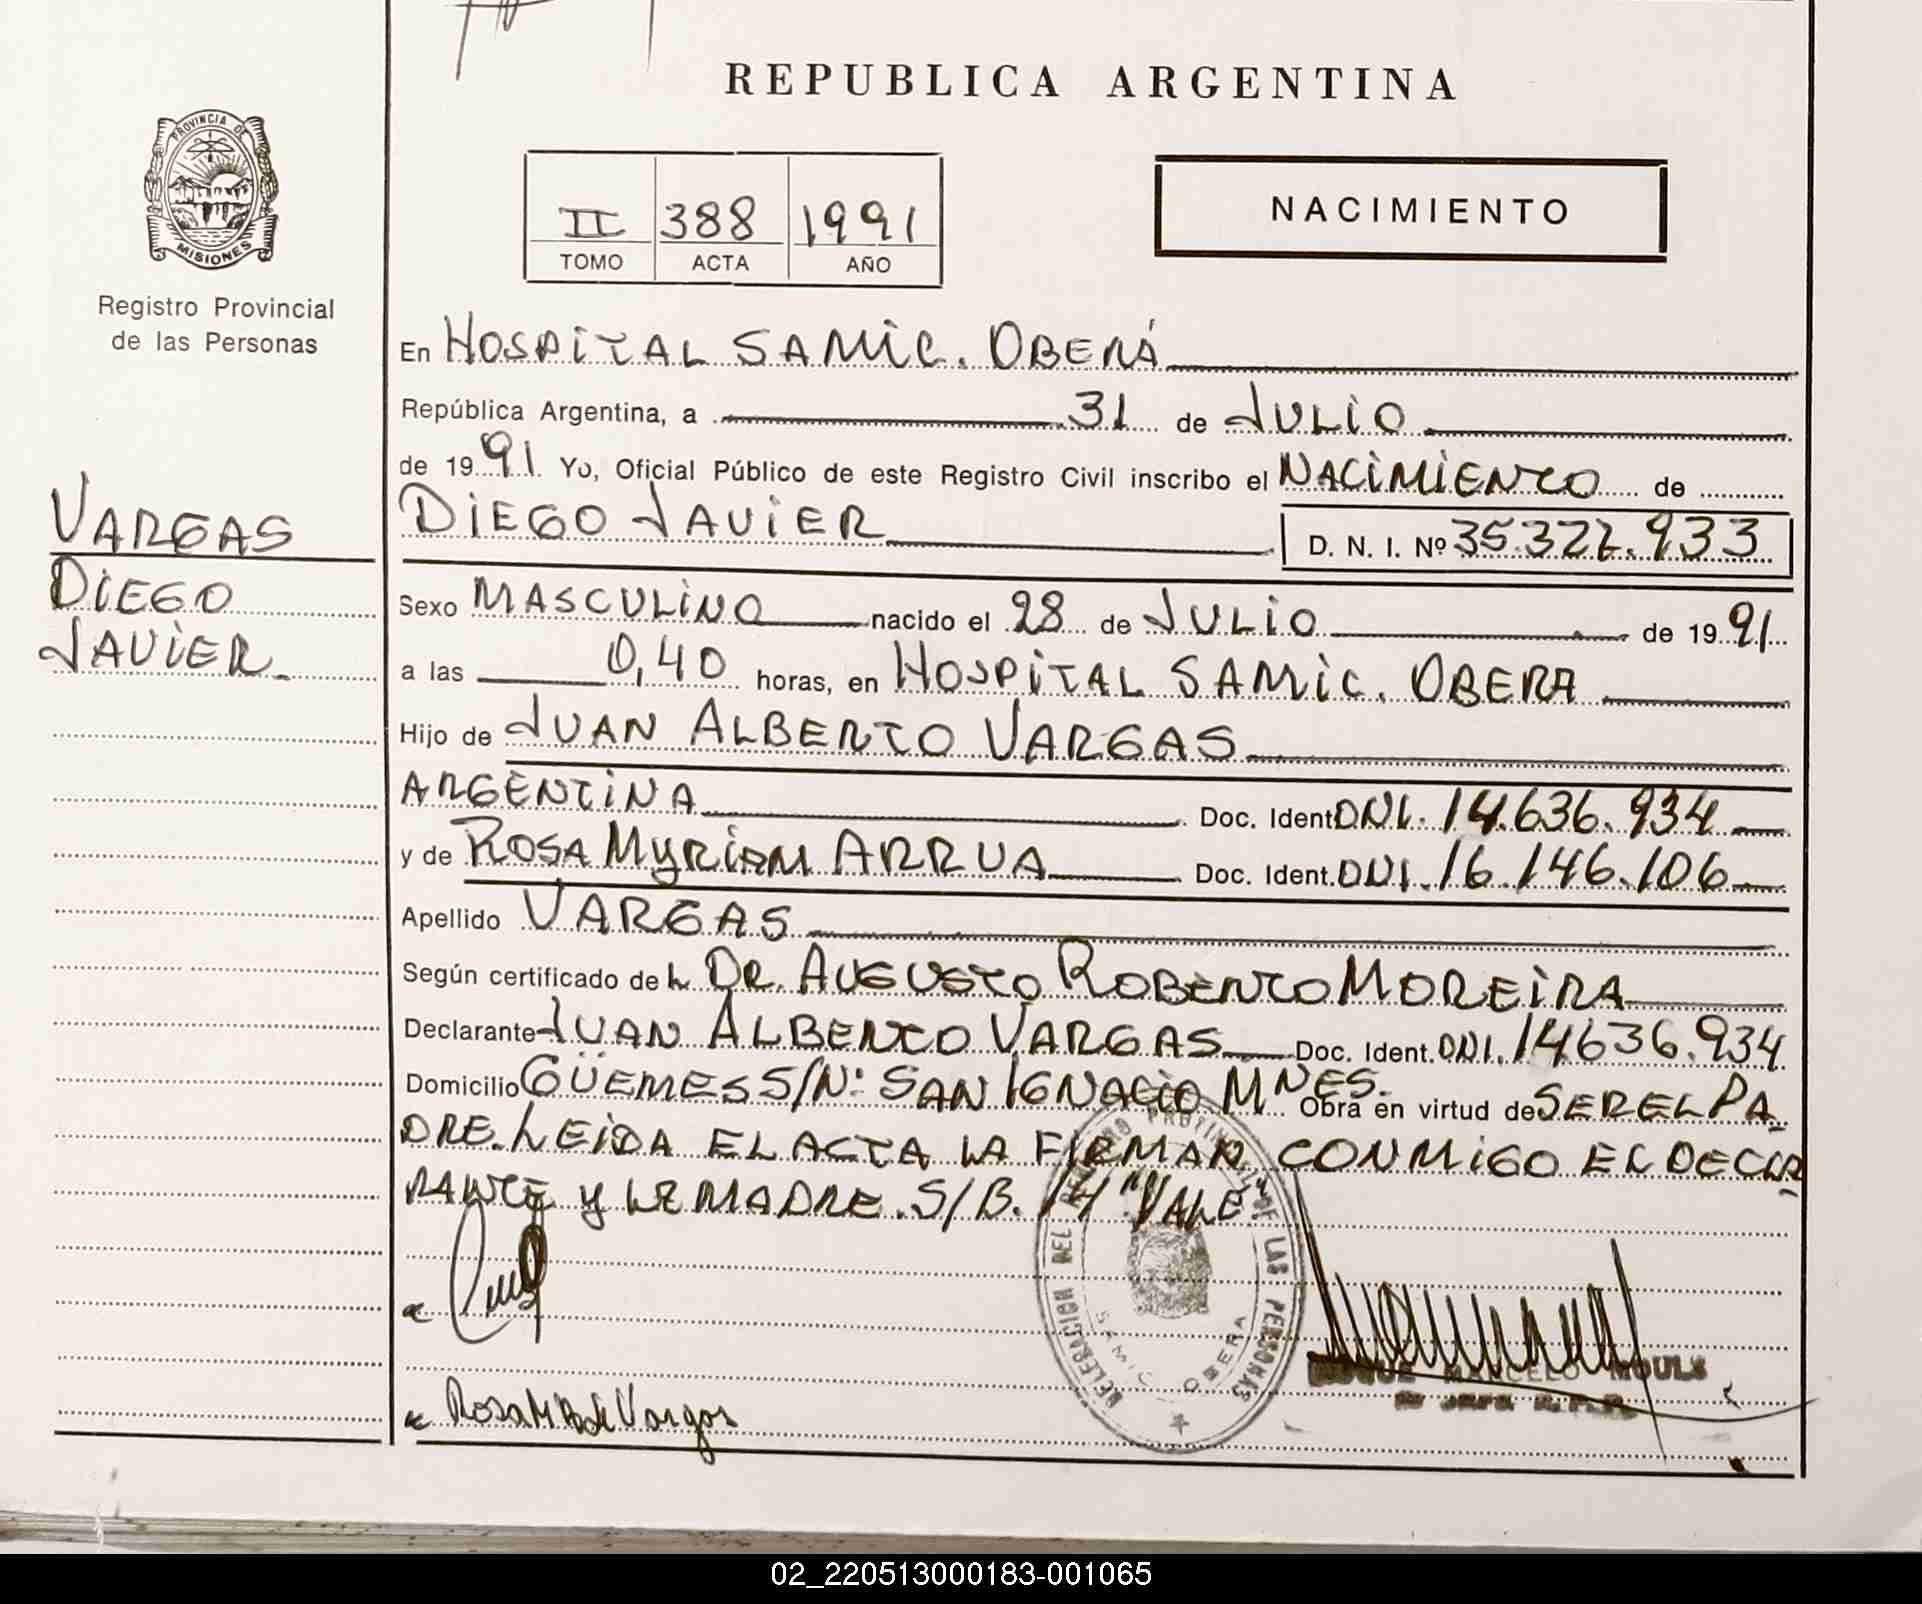 REPUBLICA ARGENTINA
PROVINCIA DE
MISIONES
Registro Provincial
de las Personas
II 388 1991
TOMO ACTA AÑO
NACIMIENTO
VARGAS
DIEGO
JAVIER
En HOSPITAL SAMIC. OBERÁ
República Argentina, a 31 de JULIO
de 1991 Yo, Oficial Público de este Registro Civil inscribo el NACIMIENTO de
DIEGO JAVIER D. N. I. Nº 35.322.933
Sexo MASCULINO nacido el 28 de JULIO de 1991
a las 0,40 horas, en HOSPITAL SAMIC. OBERA
Hijo de JUAN ALBERTO VARGAS
ARGENTINA Doc. Ident DNI. 14.636.934
y de ROSA MYRIAM ARRUA Doc. Ident. DNI. 16.146.106
Apellido VARGAS
Según certificado de L DR. AUGUSTO ROBERTO MOREIRA
Declarante JUAN ALBERTO VARGAS Doc. Ident. DNI. 14636.934
Domicilio GÜEMES S/Nº SAN IGNACIO MNES. Obra en virtud de SER EL PA
DRE. LEIDA EL ACTA LA FIRMAN CONMIGO EL DECLA
RANTE y LA MADRE. S/B. 14 "VALE"
DELEGACION DEL REGISTRO PROVINCIAL DE LAS PERSONAS
SAMIC OBERA
MARCELO
Rosa M A de Vargas
02_220513000183-001065